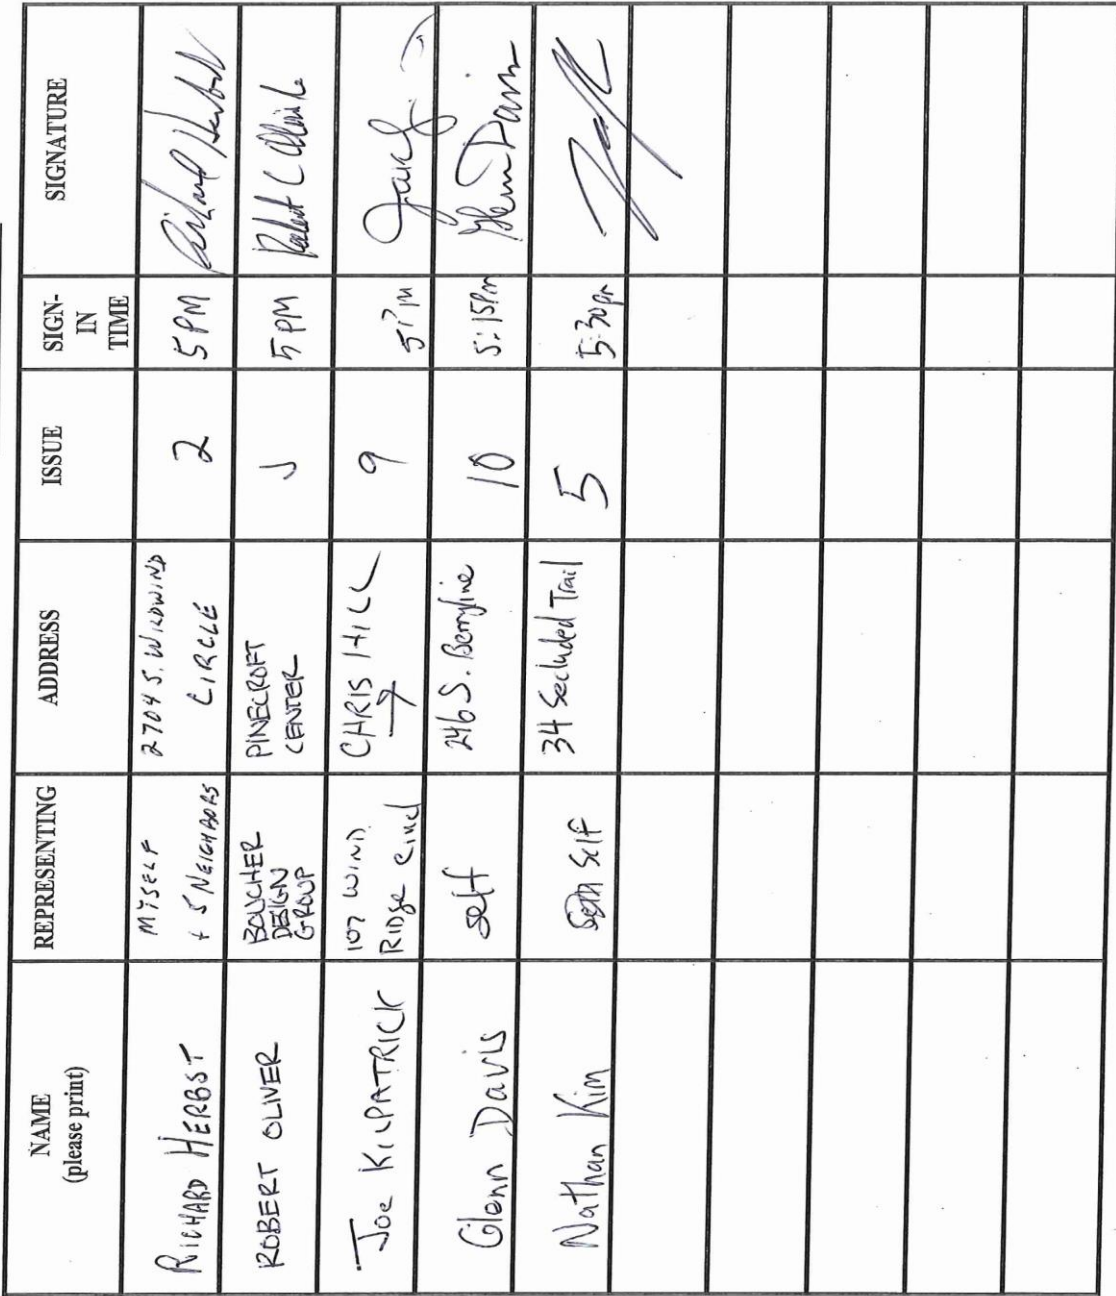 NAME
(please print)
REPRESENTING
ADDRESS
ISSUE
SIGN-
IN
TIME
SIGNATURE
RICHARD HERBST
MYSELF
+ 5 NEIGHBORS
2704 S. WILDWIND
CIRCLE
2
5 PM
Richard Herbst
ROBERT OLIVER
BOUCHER
DESIGN
GROUP
PINECROFT
CENTER
J
5 PM
Robert C
JOE KILPATRICK
107 WIND
RIDGE
CHRIS HILL
9
Glenn Davis
self
246 S. Berryline
10
5:15PM
Glenn Davis
Nathan Kim
Self
34 Secluded Trail
5
5:30pm